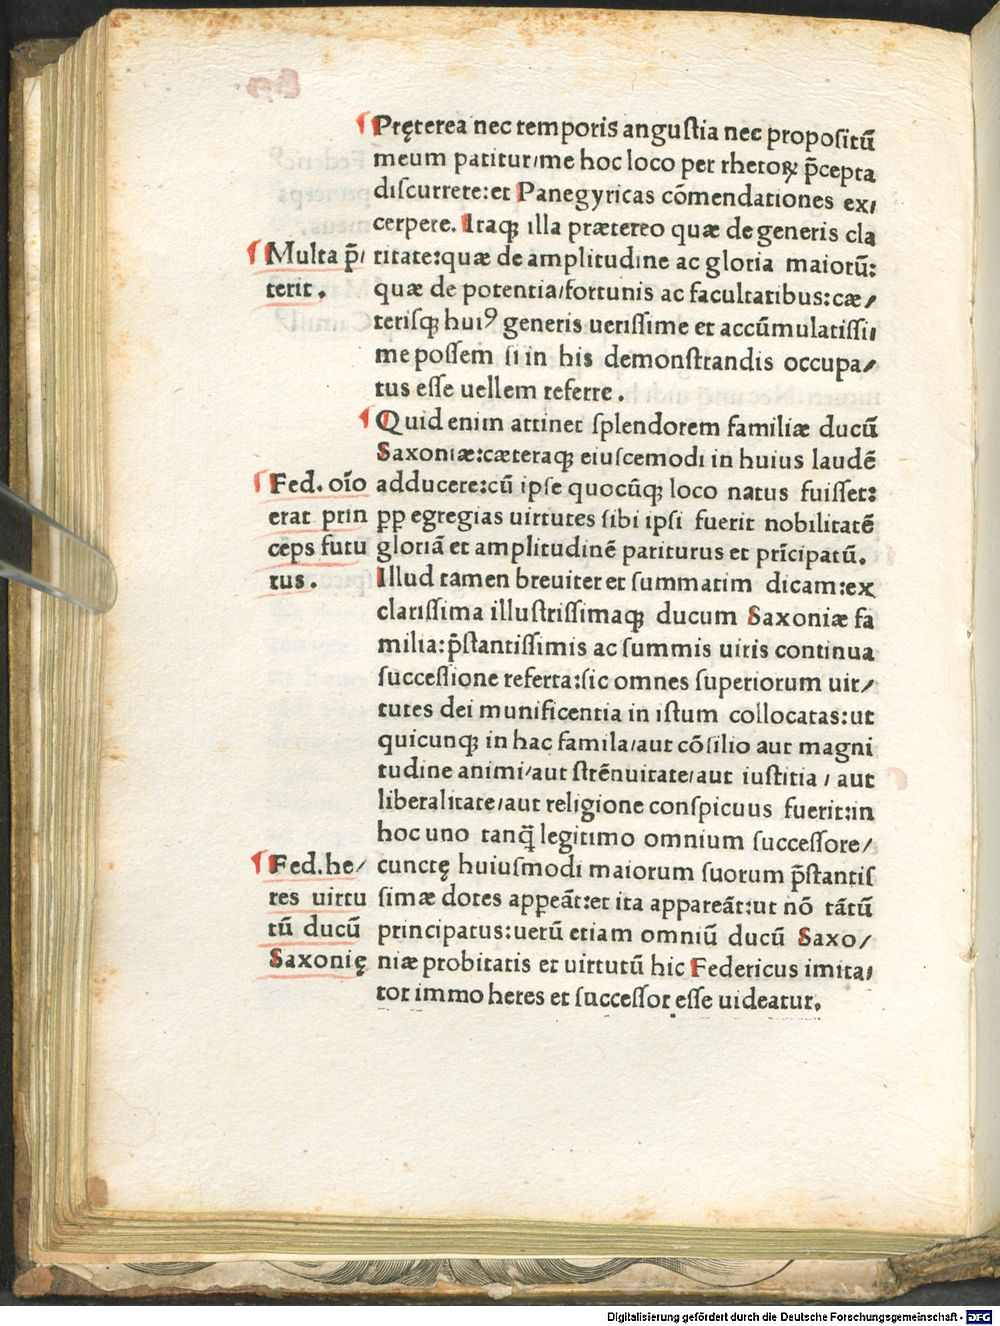 ¶Pręterea nec temporis angustia nec propositũ
meum patitur/me hoc loco per rhetoꝝ p̃cepta
discurrere:et Panegyricas cõmendationes ex/
cerpere. Itaqꝫ illa prætereo quæ de generis cla
titate:quæ de amplitudine ac gloria maiorũ:
quæ de potentia/fortunis ac facultatibus:cæ/
terisqꝫ huiꝰ generis uerissime et accũmulatissi/
me possem si in his demonstrandis occupa/
tus esse uellem referre.
¶Multa p̃/
terit.
¶Quid enim attinet splendorem familiæ ducũ
Saxoniæ:cæteraqꝫ eiuscemodi in huius laudẽ
adducere:cũ ipse quocũqꝫ loco natus fuisset:
ꝓꝑ egregias uirtutes sibi ipsi fuerit nobilitatẽ
gloriã et amplitudinẽ pariturus et prĩcipatũ.
Illud tamen breuiter et summatim dicam:ex
clarissima illustrissimaqꝫ ducum Saxoniæ fa
milia:p̃stantissimis ac summis uiris continua
successione referta:sic omnes superiorum uir/
tutes dei munificentia in istum collocatas:ut
quicunqꝫ in hac famila/aut cõsilio aut magni
tudine animi/aut strẽnuitate/aut iustitia / aut
liberalitate/aut religione conspicuus fuerit:in
hoc uno tanq̃ legitimo omnium successore/
cunctę huiusmodi maiorum suorum p̃stantis
simæ dotes appeãt:et ita appareãt:ut nõ tãtũ
principatus:uerũ etiam omniũ ducũ Saxo/
niæ probitatis et uirtutũ hic Federicus imita/
tor immo heres et successor esse uideatur.
¶Fed. oĩo
erat prin
ceps futu
rus.
¶Fed.he/
res uirtu
tũ ducũ
Saxonię
Digitalisierung gefördert durch die Deutsche Forschungsgemeinschaft - DFG